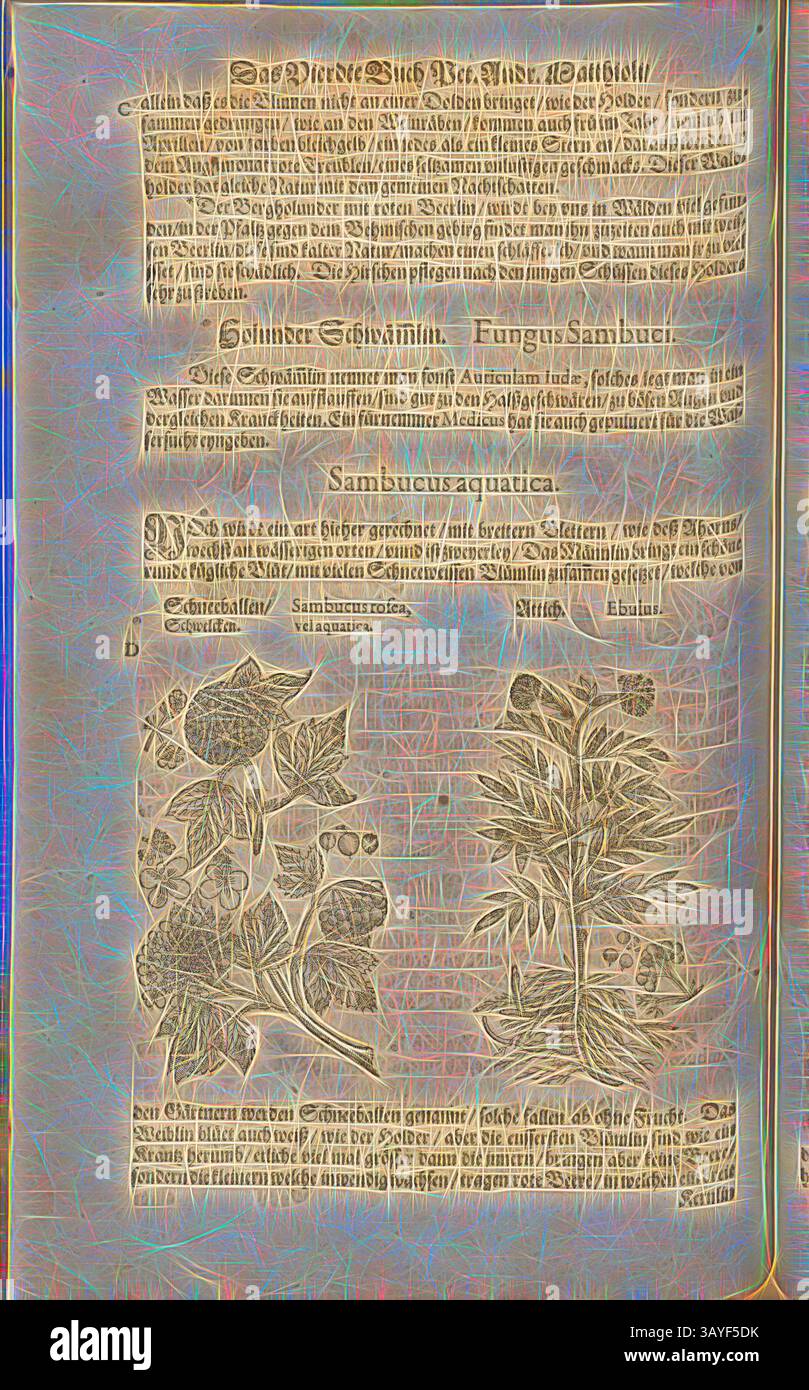 Das Vierdte Buch Pet. Andr. Matthioli
C allein daß es die Blumen nicht an einer Dolden bringet / wie der Holder / sondern zu-
sammen gedrungen / wie an den Weinräben / kommen auch frü im Jahr / nemlich im
Aprillen / von farben bleichgelb / ein jedes als ein kleines Sternlen / darauß werden in
dem Augstmonat rote Treublen / eines seltzamen unlustigen geschmacks. Dieser Wald-
holder hat gleiche Natur mit dem gemeinen Nachtschatten.
Der Bergholunder mit roten Beerlin / wirdt bey uns in Wälden viel gefun-
den / in der Pfaltz gegen dem Behmischen gebirg findet man ihn zuzeiten auch mit weis-
sen Beerlin / diese sind kalter Natur / machen einen schläfferich / und wann man zu viel
isset / sind sie schädlich. Die Hirschen pflegen nach den jungen Schüssen dieses Holders
sehr zu streben.
Holunder Schwäm̃lin. Fungus Sambuci.
Diese Schwäm̃lin nennet man sonst Auriculam Iudæ, solches legt man in ein
Wasser darinnen sie aufflauffen / sind gut zu den Halßgeschwären / zu bösen Augen und
dergleichen Kranckheiten. Ein fürnemmer Medicus hat sie auch gepulvert für die Was-
sersucht eyngeben.
Sambucus aquatica.
NOch wirdt ein art hieher gerechnet / mit breittern Blettern / wie deß Ahorns /
wechst an wässerigen orten / unnd ist zweyerley / Das Männlin bringt ein schöne
runde küglichte Blüt / mit vielen Schneeweissen Blümlin zusam̃en gesetzet / welche von
Schneeballen / Sambucus rosea, Attich. Ebulus.
Schwelcken. vel aquatica.
D
den Gärtnern werden Schneeballen genannt / solche fallen ab ohne Frucht. Das
Weiblin blüet auch weiß / wie der Holder / aber die eussersten Blümlin sind wie ein
Krantz herumb / etliche viel mal grösser dann die innern / bringen aber keine Beere /
sondern die kleinern welche inwendig wachsen / tragen rote Beere / in welchen ein breit
Kernlin
alamy
Image ID: 3AYF5DK
www.alamy.com